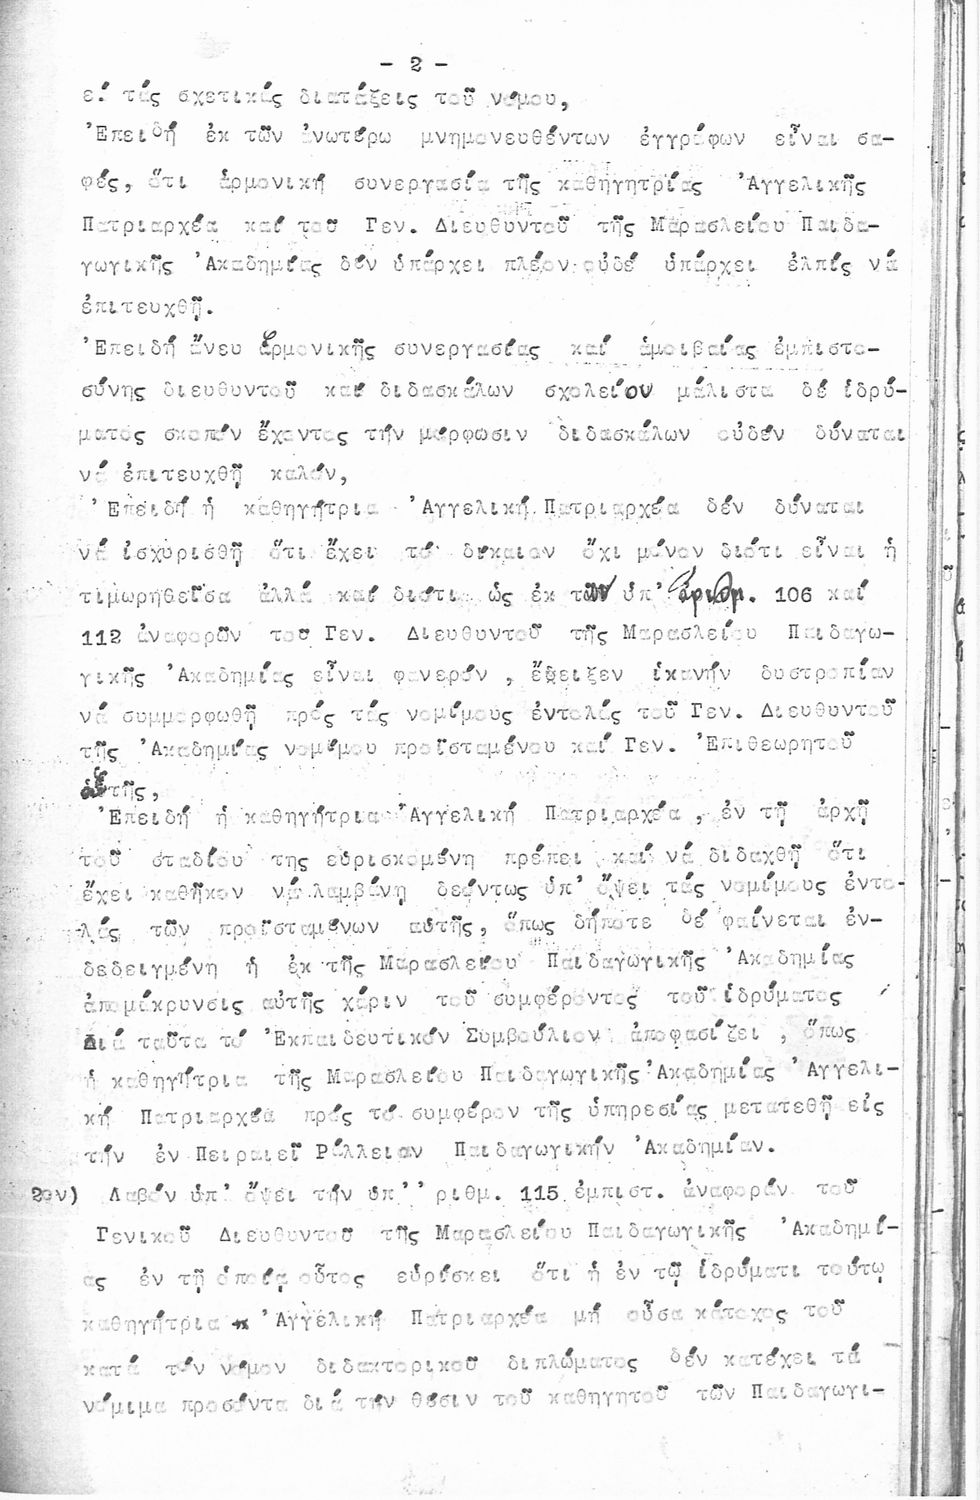 - 2 -
εί τάς σχετικάς διατάξεις τοῦ νόμου,
Ἐπειδή ἐκ τῶν ἀνωτέρω μνημονευθέντων ἐγγράφων εἶναι σα-
φές, ὅτι ἁρμονική συνεργασία τῆς καθηγητρίας Ἀγγελικῆς
Πατριαρχέα καί τοῦ Γεν. Διευθυντοῦ τῆς Μαρασλείου Παιδα-
γωγικῆς Ἀκαδημίας δέν ὑπάρχει πλέον οὐδέ ὑπάρχει ἐλπίς νά
ἐπιτευχθῇ.
Ἐπειδή ἄνευ ἁρμονικῆς συνεργασίας καί ἀμοιβαίας ἐμπιστο-
σύνης διευθυντοῦ καί διδασκάλων σχολείου μάλιστα δέ ἱδρύ-
ματος σκοπόν ἔχοντος τήν μόρφωσιν διδασκάλων οὐδέν δύναται
νά ἐπιτευχθῇ καλόν,
Ἐπειδή ἡ καθηγήτρια Ἀγγελική Πατριαρχέα δέν δύναται
νά ἰσχυρισθῇ ὅτι ἔχει τό δίκαιον ὄχι μόνον διότι εἶναι ἡ
τιμωρηθεῖσα ἀλλά καί διότι ὡς ἐκ τῶν ὑπ' ἀριθμ. 106 καί
112 ἀναφορῶν του Γεν. Διευθυντοῦ τῆς Μαρασλείου Παιδαγω-
γικῆς Ἀκαδημίας εἶναι φανερόν , ἔδειξεν ἱκανήν δυστροπίαν
νά συμμορφωθῇ πρός τάς νομίμους ἐντολάς τοῦ Γεν. Διευθυντοῦ
τῆς Ἀκαδημίας νομίμου προϊσταμένου καί Γεν. Ἐπιθεωρητοῦ
αὐτῆς,
Ἐπειδή ἡ καθηγήτρια Ἀγγελική Πατριαρχέα , ἐν τῇ ἀρχῇ
τοῦ σταδίου της εὑρισκομένη πρέπει καί νά διδαχθῇ ὅτι
ἔχει καθῆκον νά λαμβάνῃ δεόντως ὑπ' ὄψει τάς νομίμους ἐντο-
λάς τῶν προϊσταμένων αὐτῆς, ὅπως δήποτε δέ φαίνεται ἐν-
δεδειγμένη ἡ ἐκ τῆς Μαρασλείου Παιδαγωγικῆς Ἀκαδημίας
ἀπομάκρυνσις αὐτῆς χάριν τοῦ συμφέροντος τοῦ ἱδρύματος
Διά ταῦτα τό Ἐκπαιδευτικόν Συμβούλιον ἀποφασίζει , ὅπως
ἡ καθηγήτρια τῆς Μαρασλείου Παιδαγωγικῆς Ἀκαδημίας Ἀγγελι-
κή Πατριαρχέα πρός τό συμφέρον τῆς ὑπηρεσίας μετατεθῇ εἰς
τήν ἐν Πειραιεῖ Ράλλειαν Παιδαγωγικήν Ἀκαδημίαν.
2ον) Λαβόν ὑπ' ὄψει τήν ὑπ'' ριθμ. 115 ἐμπιστ. ἀναφοράν τοῦ
Γενικοῦ Διευθυντοῦ τῆς Μαρασλείου Παιδαγωγικῆς Ἀκαδημί-
ας ἐν τῇ ὁποίᾳ οὗτος εὑρίσκει ὅτι ἡ ἐν τῷ ἱδρύματι τούτῳ
καθηγήτρια Ἀγγελική Πατριαρχέα μή οὖσα κάτοχος τοῦ
κατά τόν νόμον διδακτορικοῦ διπλώματος δέν κατέχει τά
νόμιμα προσόντα διά τήν θέσιν τοῦ καθηγητοῦ τῶν Παιδαγωγι-